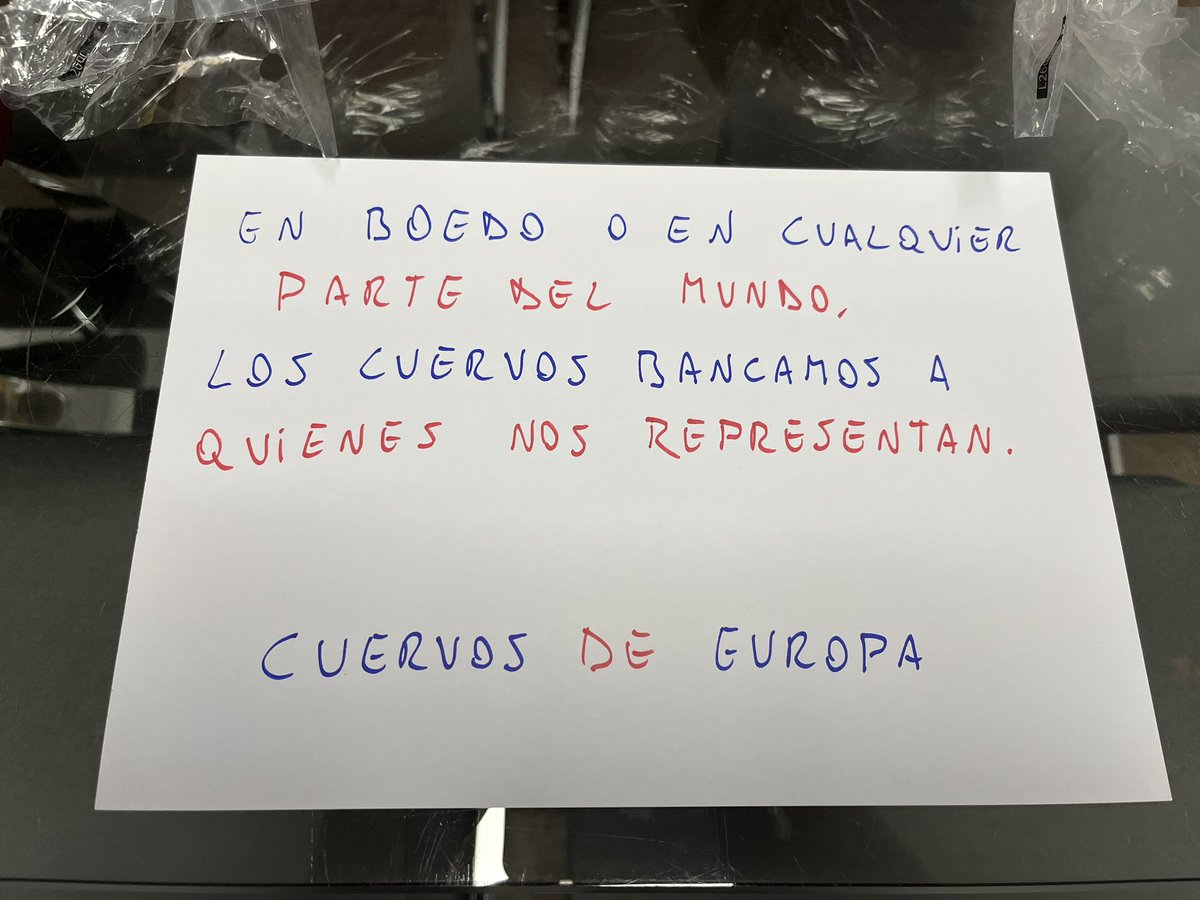 EN BOEDO O EN CUALQUIER
PARTE DEL MUNDO,
LOS CUERVOS BANCAMOS A
QUIENES NOS REPRESENTAN.
CUERVOS DE EUROPA